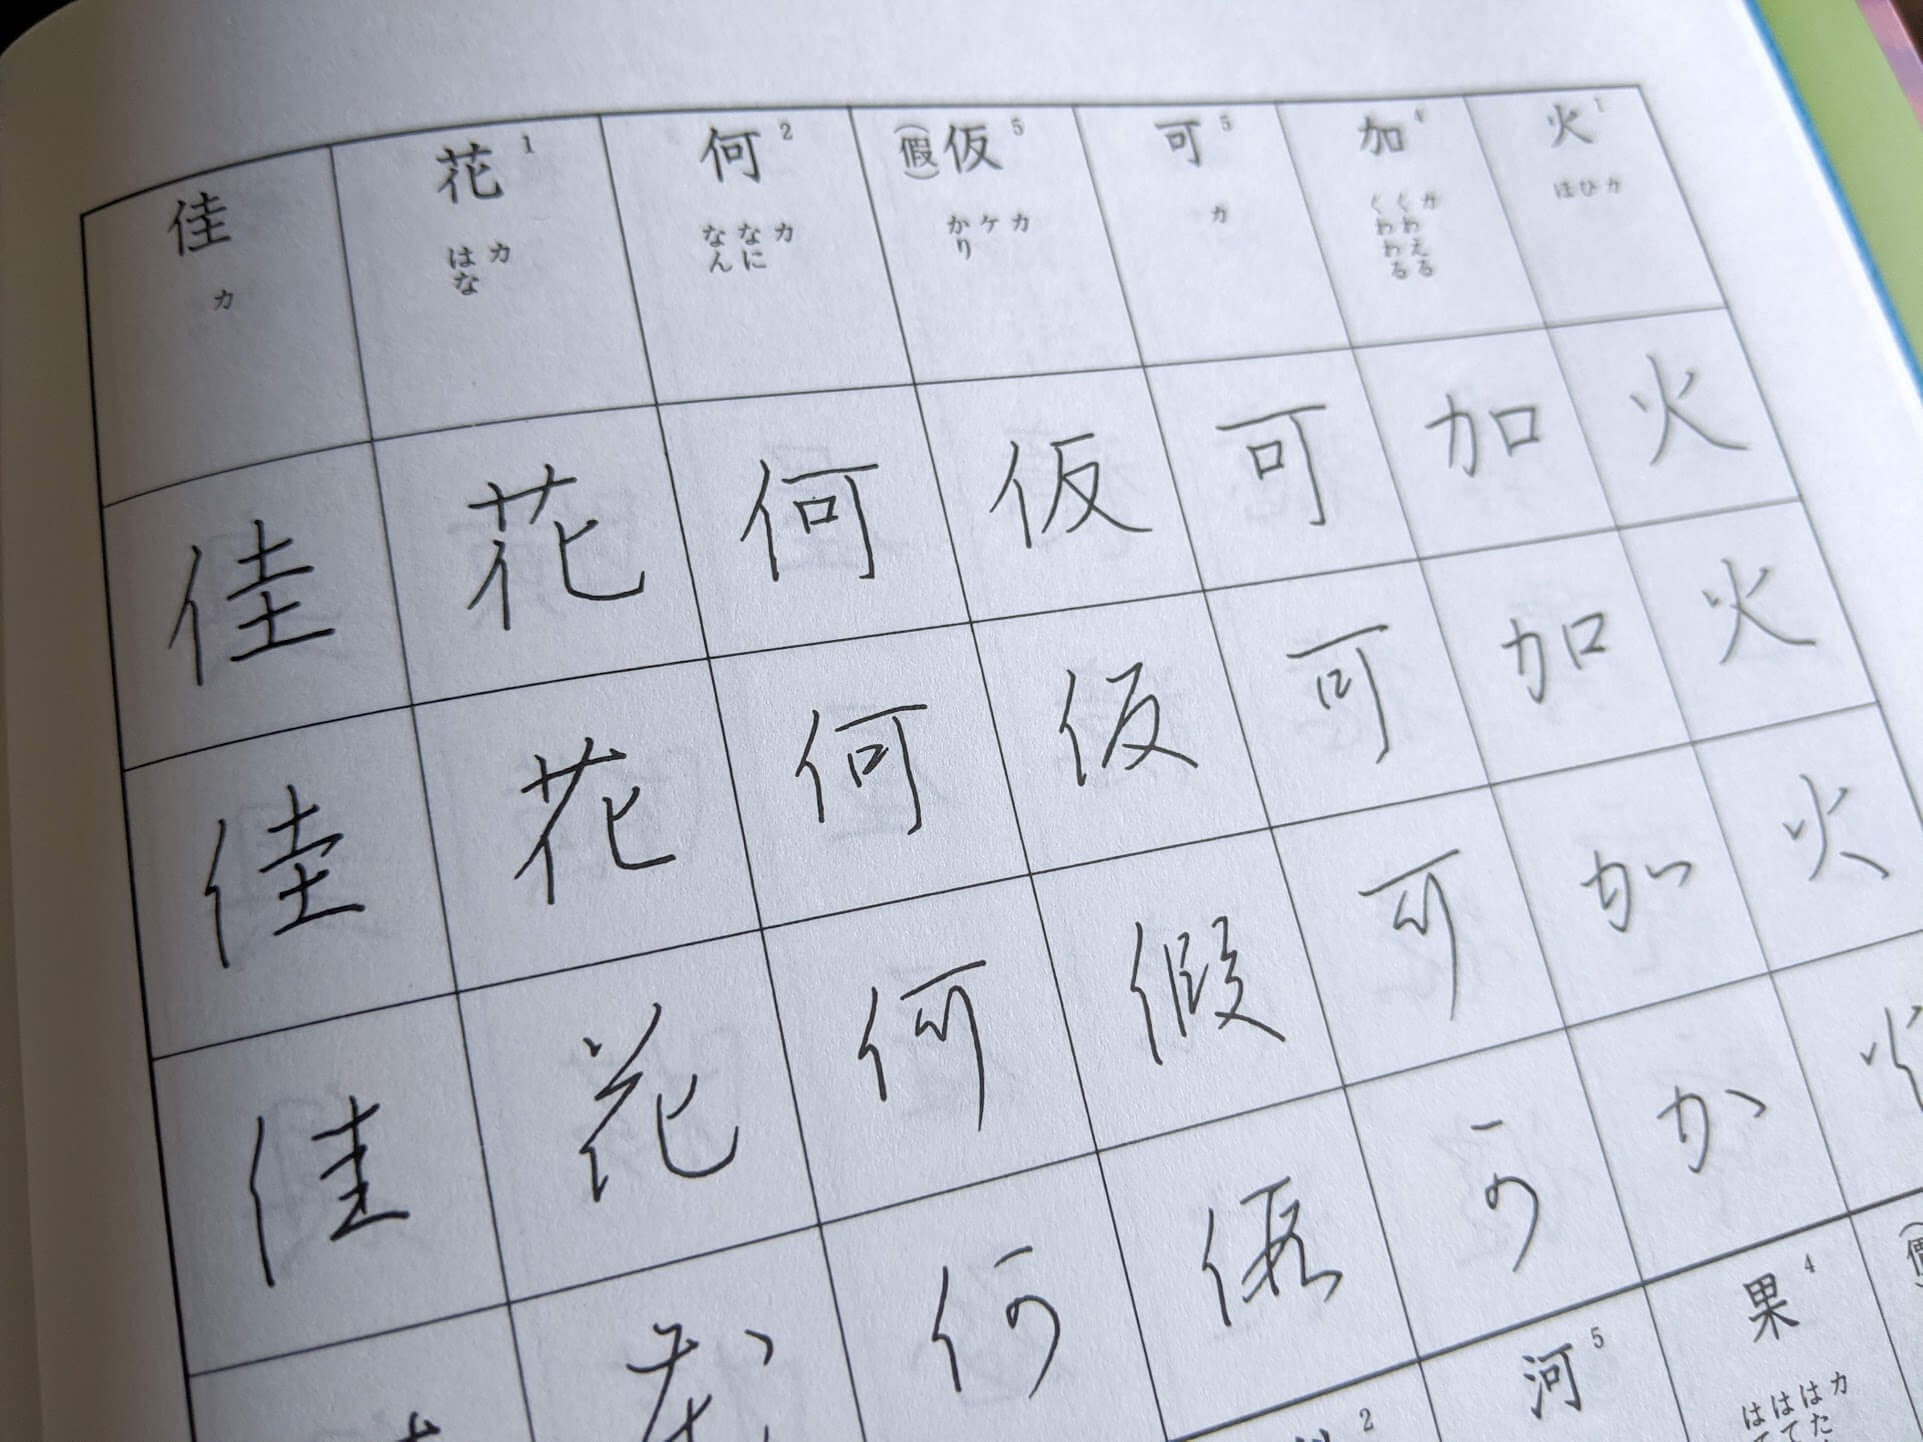 火 1 カ ひ ほ
加 4 カ くわえる くわわる
可 5 カ
仮 5 (假) カ ケ かり
何 2 カ なに なん
花 1 カ はな
佳 カ
火 加 可 仮 何 花 佳
火 加 可 仮 何 花 佳
火 加 可 假 何 花 佳
火 加 可 假 何 花
果 4 カ
河 5
2